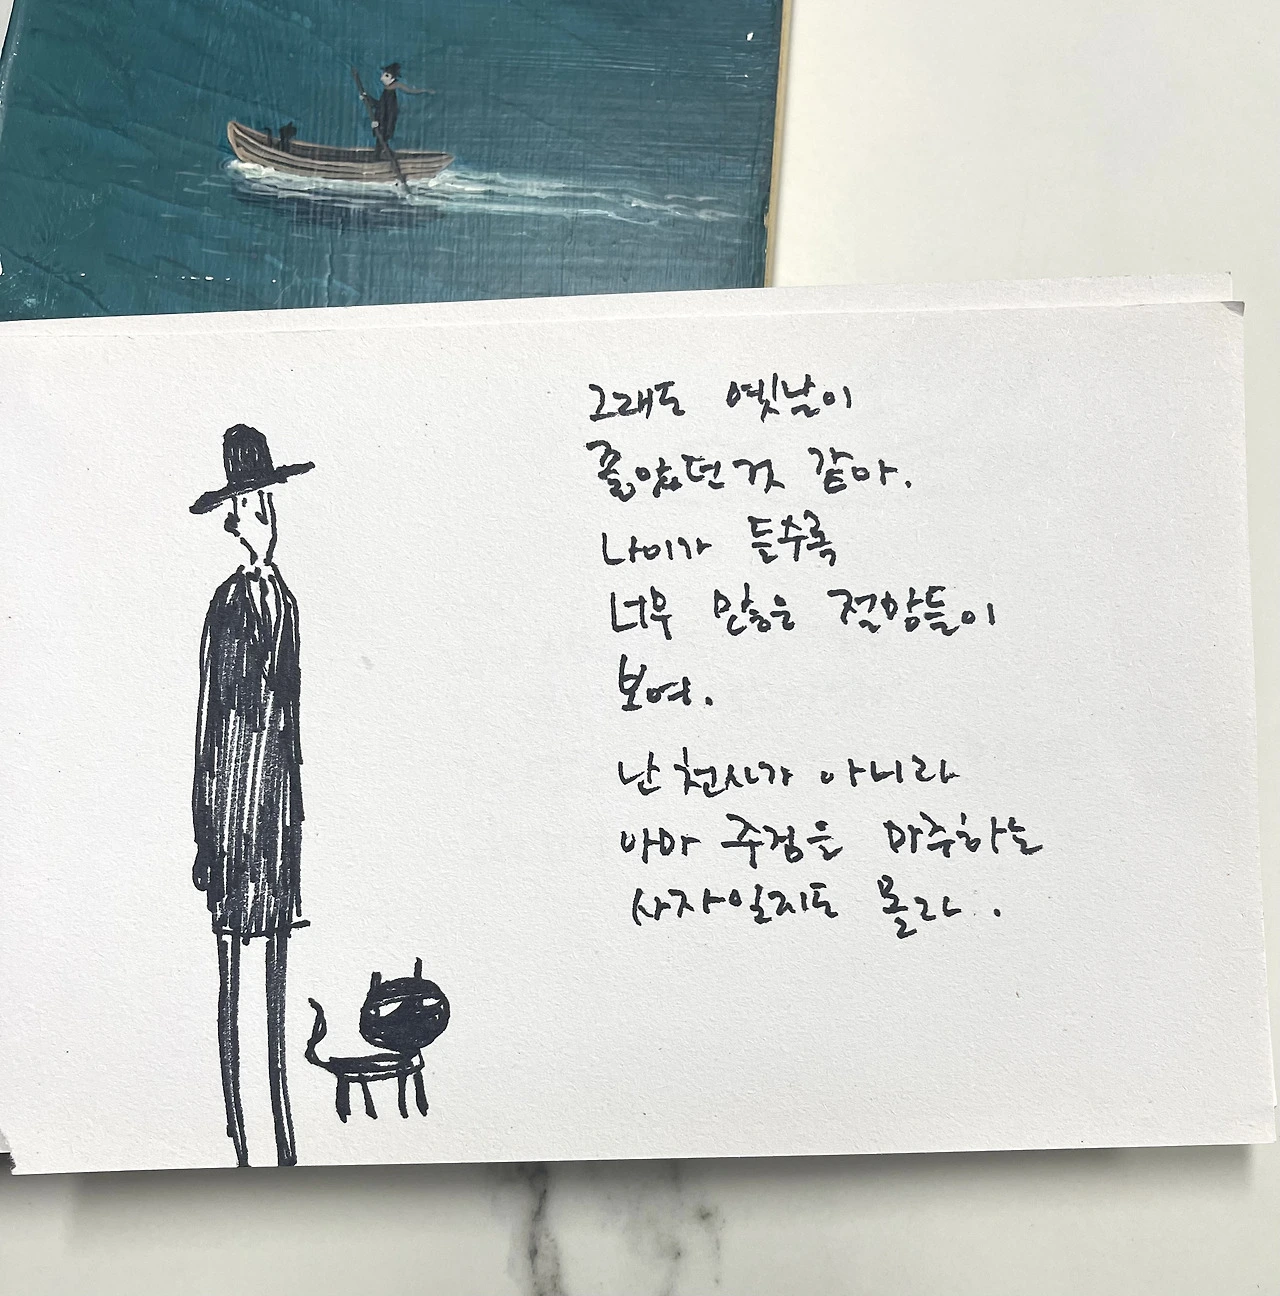 그래도 옛날이
좋았던 것 같아.
나이가 들수록
너무 많은 절망들이
보여.
난 천사가 아니라
아마 주정을 마주하는
사자일지도 몰라.